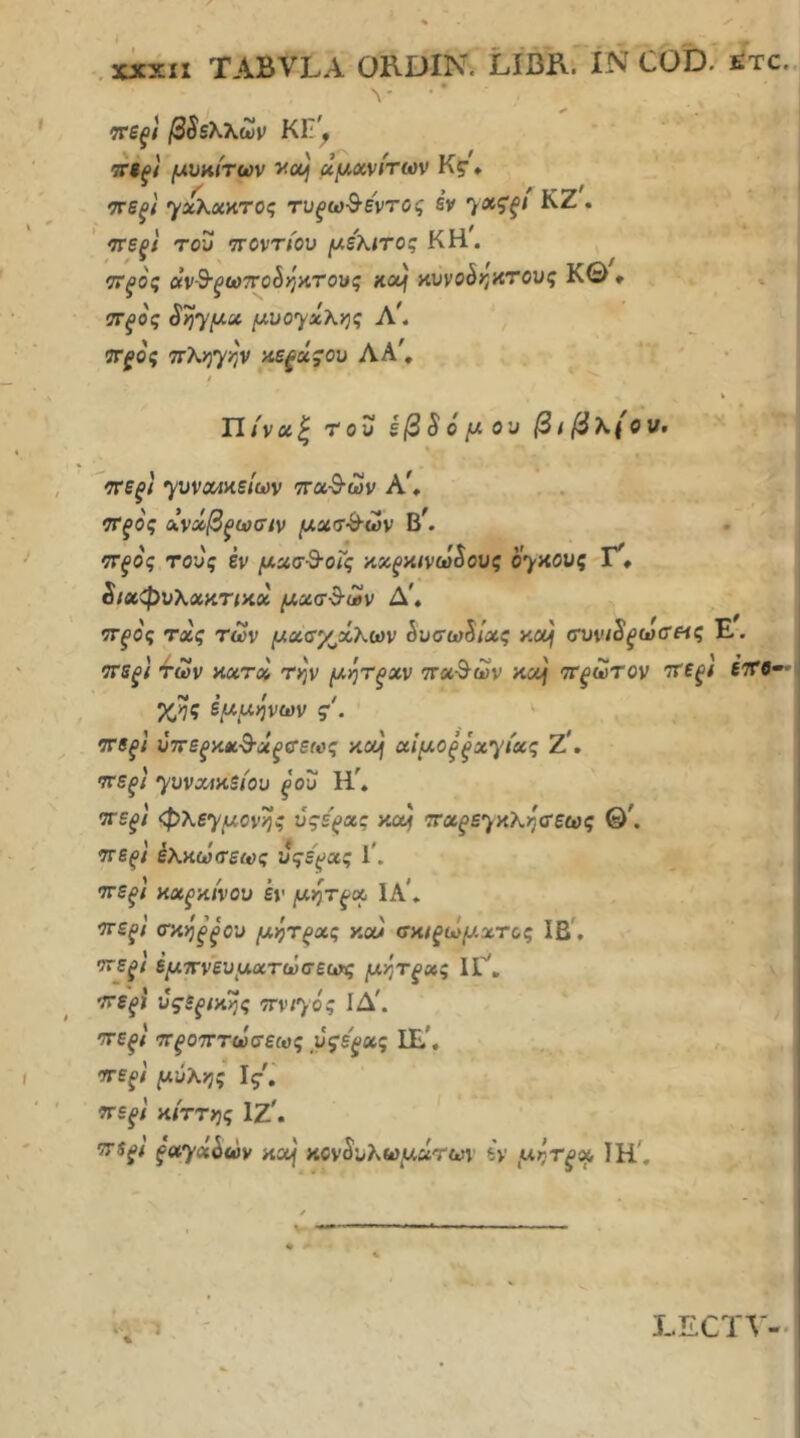 xxxii TABVLA ORDIN. LIBR. IN COD. ETC.
περὶ βδελλῶν ΚΕʹ,
περὶ μυκίτων καὶ ἀμανίτων Κϛʹ.
περὶ γάλακτος τυρωθέντος ἐν γαϛρὶ ΚΖʹ.
περὶ τοῦ ποντίου μέλιτος ΚΗʹ.
πρὸς ἀνθρωποδήκτους καὶ κυνοδήκτους ΚΘʹ.
πρὸς δῆγμα μυογάλης Λʹ.
πρὸς πληγὴν κεράϛου ΛΑʹ.
Πίναξ τοῦ ἑβδόμου βιβλίου.
περὶ γυναικείων παθῶν Αʹ.
πρὸς ἀνάβρωσιν μασθῶν Βʹ.
πρὸς τοὺς ἐν μασθοῖς καρκινώδους ὄγκους Γʹ.
διαφυλακτικὰ μασθῶν Δʹ.
πρὸς τὰς τῶν μασχάλων δυσωδίας καὶ συνιδρώσεις Εʹ.
περὶ τῶν κατὰ τὴν μήτραν παθῶν καὶ πρῶτον περὶ ἐπο-
χῆς ἐμμήνων ϛʹ.
περὶ ὑπερκαθάρσεως καὶ αἱμορῤαγίας Ζʹ.
περὶ γυναικείου ῥοῦ Ηʹ.
περὶ φλεγμονῆς ὑϛέρας καὶ παρεγκλήσεως Θʹ.
περὶ ἑλκώσεως ὑϛέρας Ιʹ.
περὶ καρκίνου ἐν μήτρᾳ ΙΑʹ.
περὶ σκήῤῥου μήτρας καὶ σκιρώματος ΙΒʹ.
περὶ ἐμπνευματώσεως μήτρας ΙΓʹ.
περὶ ὑϛερικῆς πνιγός ΙΔʹ.
περὶ προπτώσεως ὑϛέρας ΙΕʹ.
περὶ μύλης Ιϛʹ.
περὶ κίττης ΙΖʹ.
περὶ ῥαγάδων καὶ κονδυλωμάτων ἐν μήτρᾳ ΙΗʹ.
LECTV-